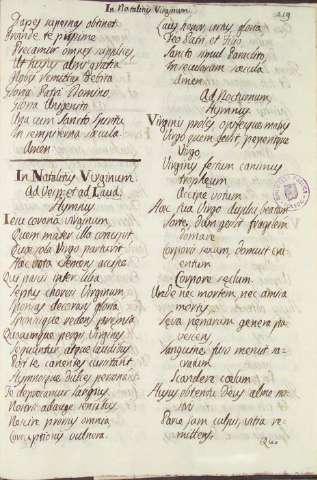 In Natalitijs Virginum.
219
Dapes supernas obtinet
Grande te pijsime
Precamur omnes supplices
Ut hujus almi gratia
Nobis remittas debita
Gloria Patri Domino
Gloria Unigenito
Una cum Sancto Spiritu
In sempiterna sæcula
Amen
In Natalitijs Virginum.
Ad Vesp. et ad Laud.
Hymnus
Iesu corona virginum
Quem mater illa concepit
Quæ sola Virgo parturit
Hæc vota clemens accipe
Qui pascis inter lilia
Septus choreis Virginum
Sponsas decorans gloria
Sponsisque reddens præmia
Quocumque pergis Virgines
Sequuntur atque laudibus
Post te canentes cursitant
Hymnosque dulces personant
Te deprecamur largius
Nostris adauge sensibus
Nescire prorsus omnia
Corruptionis vulnera.
Laus honor virtus gloria
Deo Patri et Filio
Sancto simul Paraclito
In sæculorum sæcula
Amen
Ad Nocturnum
Hymnus
Virginis proles opifexque matris
Virgo quem gessit, peperitque
Virgo
Virginis festum canimus
tropheum
Accipe votum
Hæc tua Virgo duplici beata
Sorte, dum gestit fragilem
domare
Corporis sexum, domuit cru-
entum
Corpore seclum.
Unde nec mortem, nec amica
mortis
Sæva pœnarum genera pa-
vescens
Sanguine fuso meruit sa-
cratum
Scandere cœlum
Hujus obtentu Deus alme no-
stris
Parce jam culpis, vitia re-
mittens
Quo